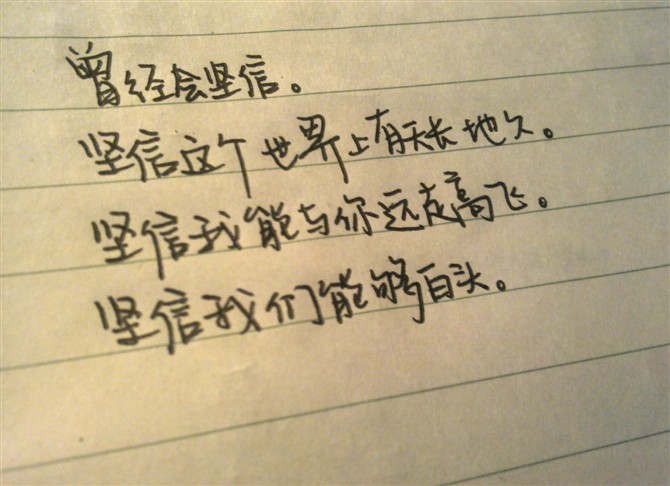 曾经会坚信。
坚信这个世界上有天长地久。
坚信我能与你远走高飞。
坚信我们能够白头。